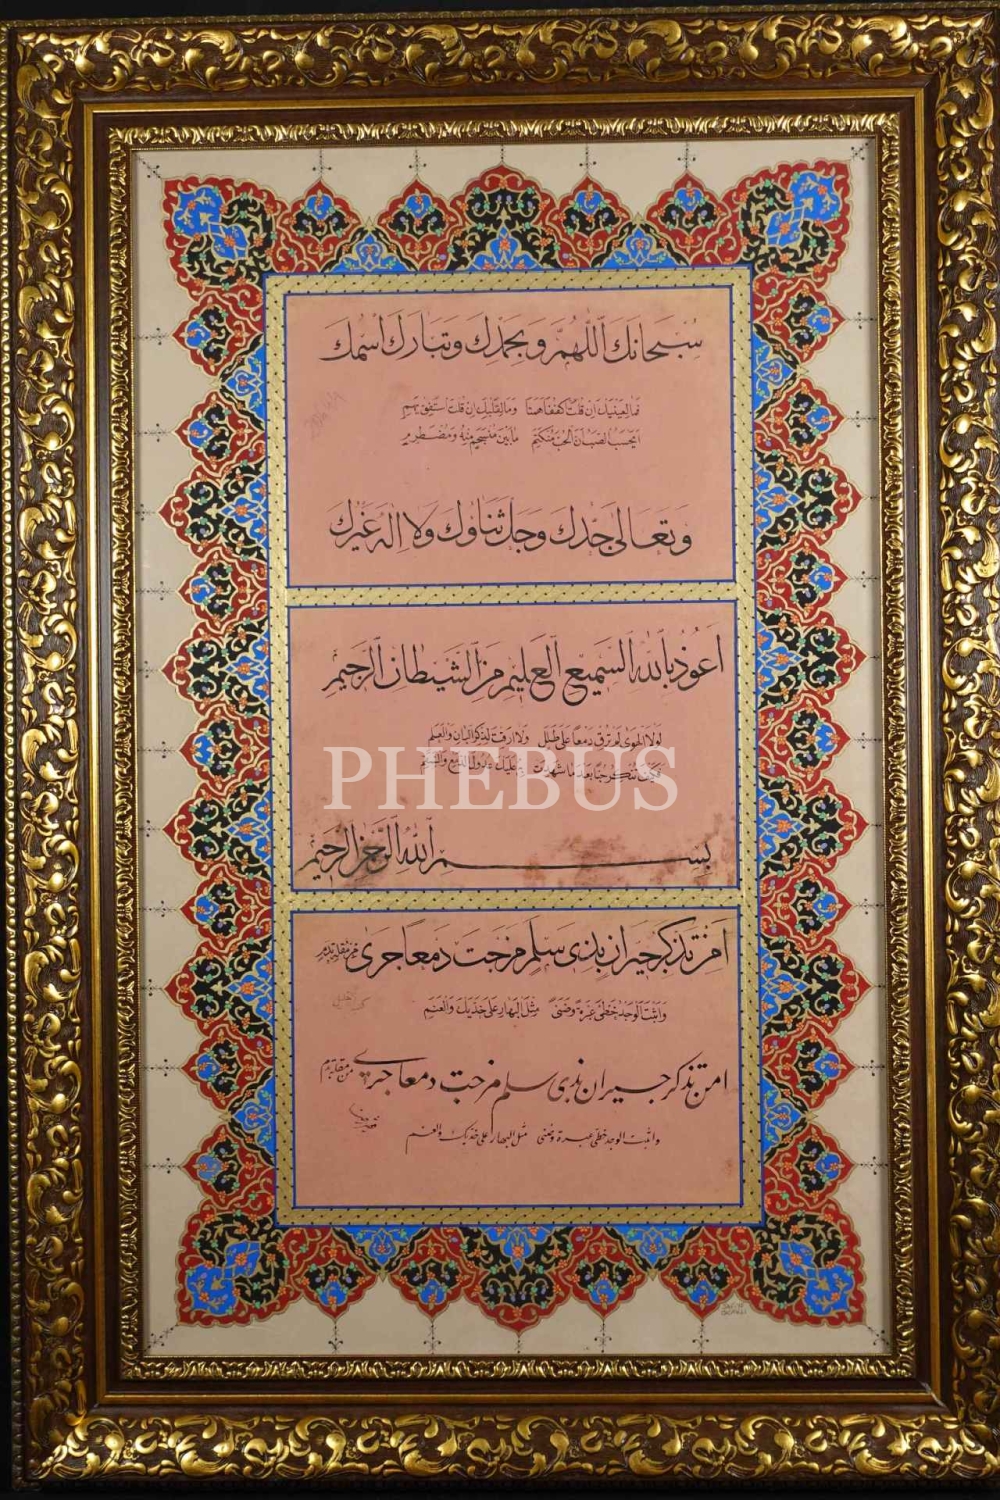 سُبْحَانَكَ اللّٰهُمَّ وَبِحَمْدِكَ وَتَبَارَكَ اسْمُكَ
فما لعينيك ان قلت اكففا همتا وما لقلبك ان قلت استفق يهم
ايحسب الصب ان الحب منكتم ما بين منسجم منه ومضطرم
وَتَعَالٰى جَدُّكَ وَجَلَّ ثَنَاؤُكَ وَلَا اِلٰهَ غَيْرُكَ
اعوذ بالله السميع العليم من الشيطان الرجيم
لولا الهوى لم ترق دمعا على طلل ولا ارقت لذكر البان والعلم
فكيف تنكر حبا بعد ما شهدت به عليك عدول الدمع والسقم
PHEBUS
بسم الله الرحمن الرحيم
امن تذكر جيران بذى سلم مزجت دمعا جرى من مقلة بدم
واثبت الوجد خطى عبرة وضنى مثل البهار على خديك والعنم
امن تذكر جيران بذى سلم مزجت دمعا جرى من مقلة بدم
واثبت الوجد خطى عبرة وضنى مثل البهار على خديك والعنم